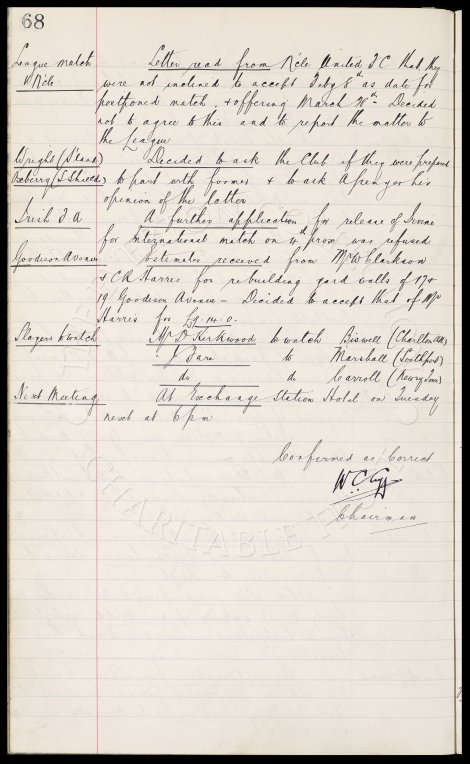 68
League match Letter read from N'cle United F C that they
v N'cle. were not inclined to accept Feby 8th as date for
postponed match, & offering March Decided
not to agree to this and to report the matter to
the League
Wright (S'land) Decided to ask the Club if they were prepared
(S. Shields) to part with former & to ask A Frenger his
opinion of the latter
Irish F A A further application for release of Irvine
for International match on 4th prox. was refused
Goodison Avenue Estimates received from Mr W Clarkson
& C R Harris for rebuilding yard walls of 17 &
19 Goodison Avenue - Decided to accept that of Mr
Harris for £9.14.0.
Players to watch Mr D Kirkwood to watch Biswell (Charlton Ath)
" J Fare to Marshall (Southport)
do do Carroll (Newry Town)
Next Meeting At Exchange Station Hotel on Tuesday
next at 6 pm
Confirmed as Correct
W. C. Cuff
Chairman
CHARITABLE